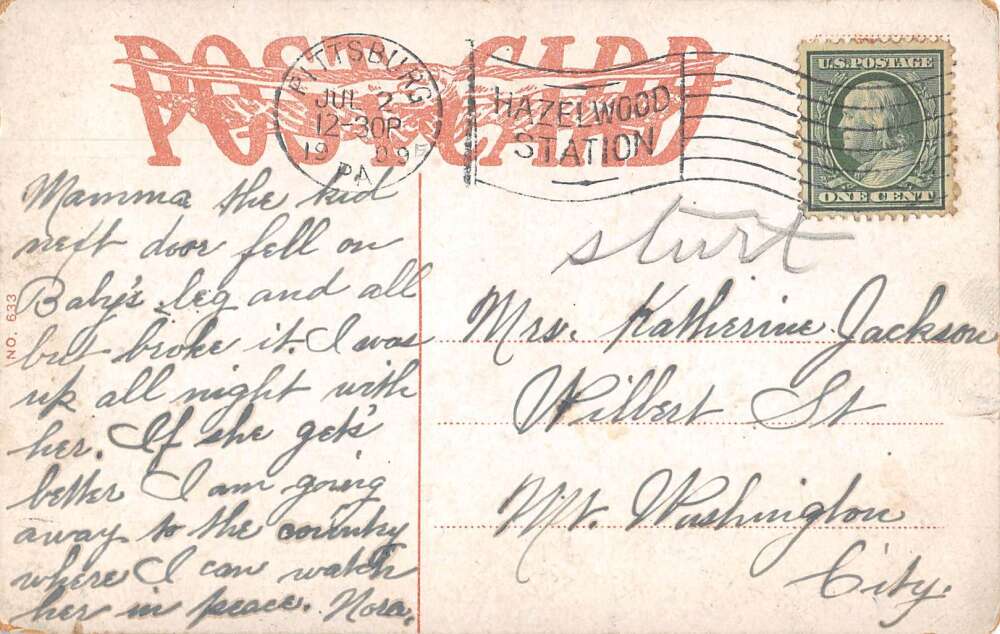 POST CARD
PITTSBURG
JUL 2
12-30P
1909
PA
HAZELWOOD
STATION
U.S. POSTAGE
ONE CENT
Mamma the kid
next door fell on
Baby's leg and all
but broke it. I was
up all night with
her. If she gets'
better I am going
away to the country
where I can watch
her in peace. Nora.
NO. 633
Mrs. Katherine Jackson
Wilbert St
Mt. Washington
City.